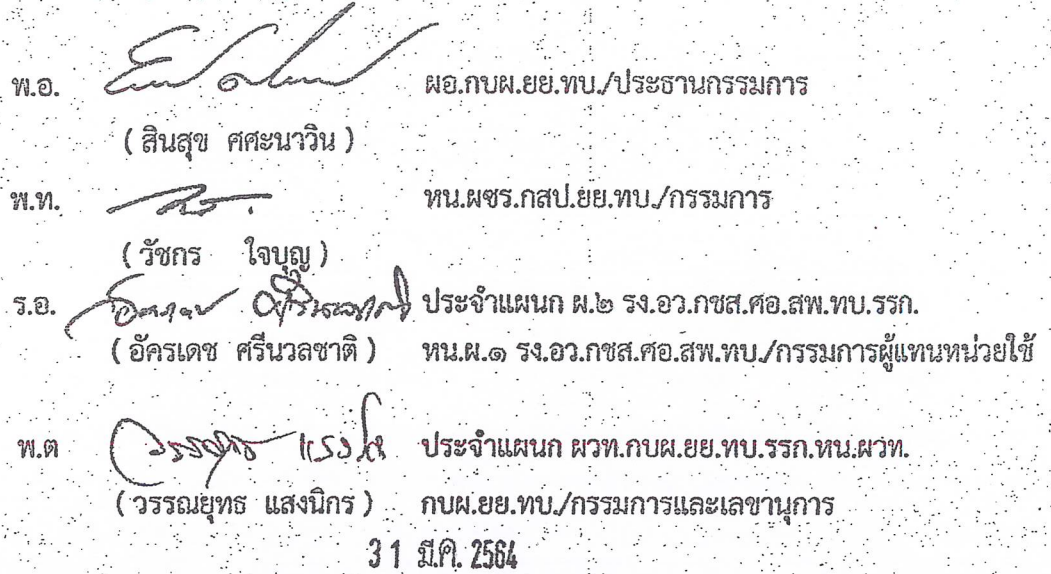 พ.อ. ผอ.กบผ.ยย.ทบ./ประธานกรรมการ
( สินสุข ศศะนาวิน )
พ.ท. หน.ผซร.กสป.ยย.ทบ./กรรมการ
( วัชกร ใจบุญ )
ร.อ. ประจำแผนก ผ.๒ รง.อว.กซส.ศอ.สพ.ทบ.รรก.
( อัครเดช ศรีนวลชาติ ) หน.ผ.๑ รง.อว.กซส.ศอ.สพ.ทบ./กรรมการผู้แทนหน่วยใช้
พ.ต ประจำแผนก ผวท.กบผ.ยย.ทบ.รรก.หน.ผวท.
( วรรณยุทธ แสงนิกร ) กบผ.ยย.ทบ./กรรมการและเลขานุการ
31 มี.ค. 2564